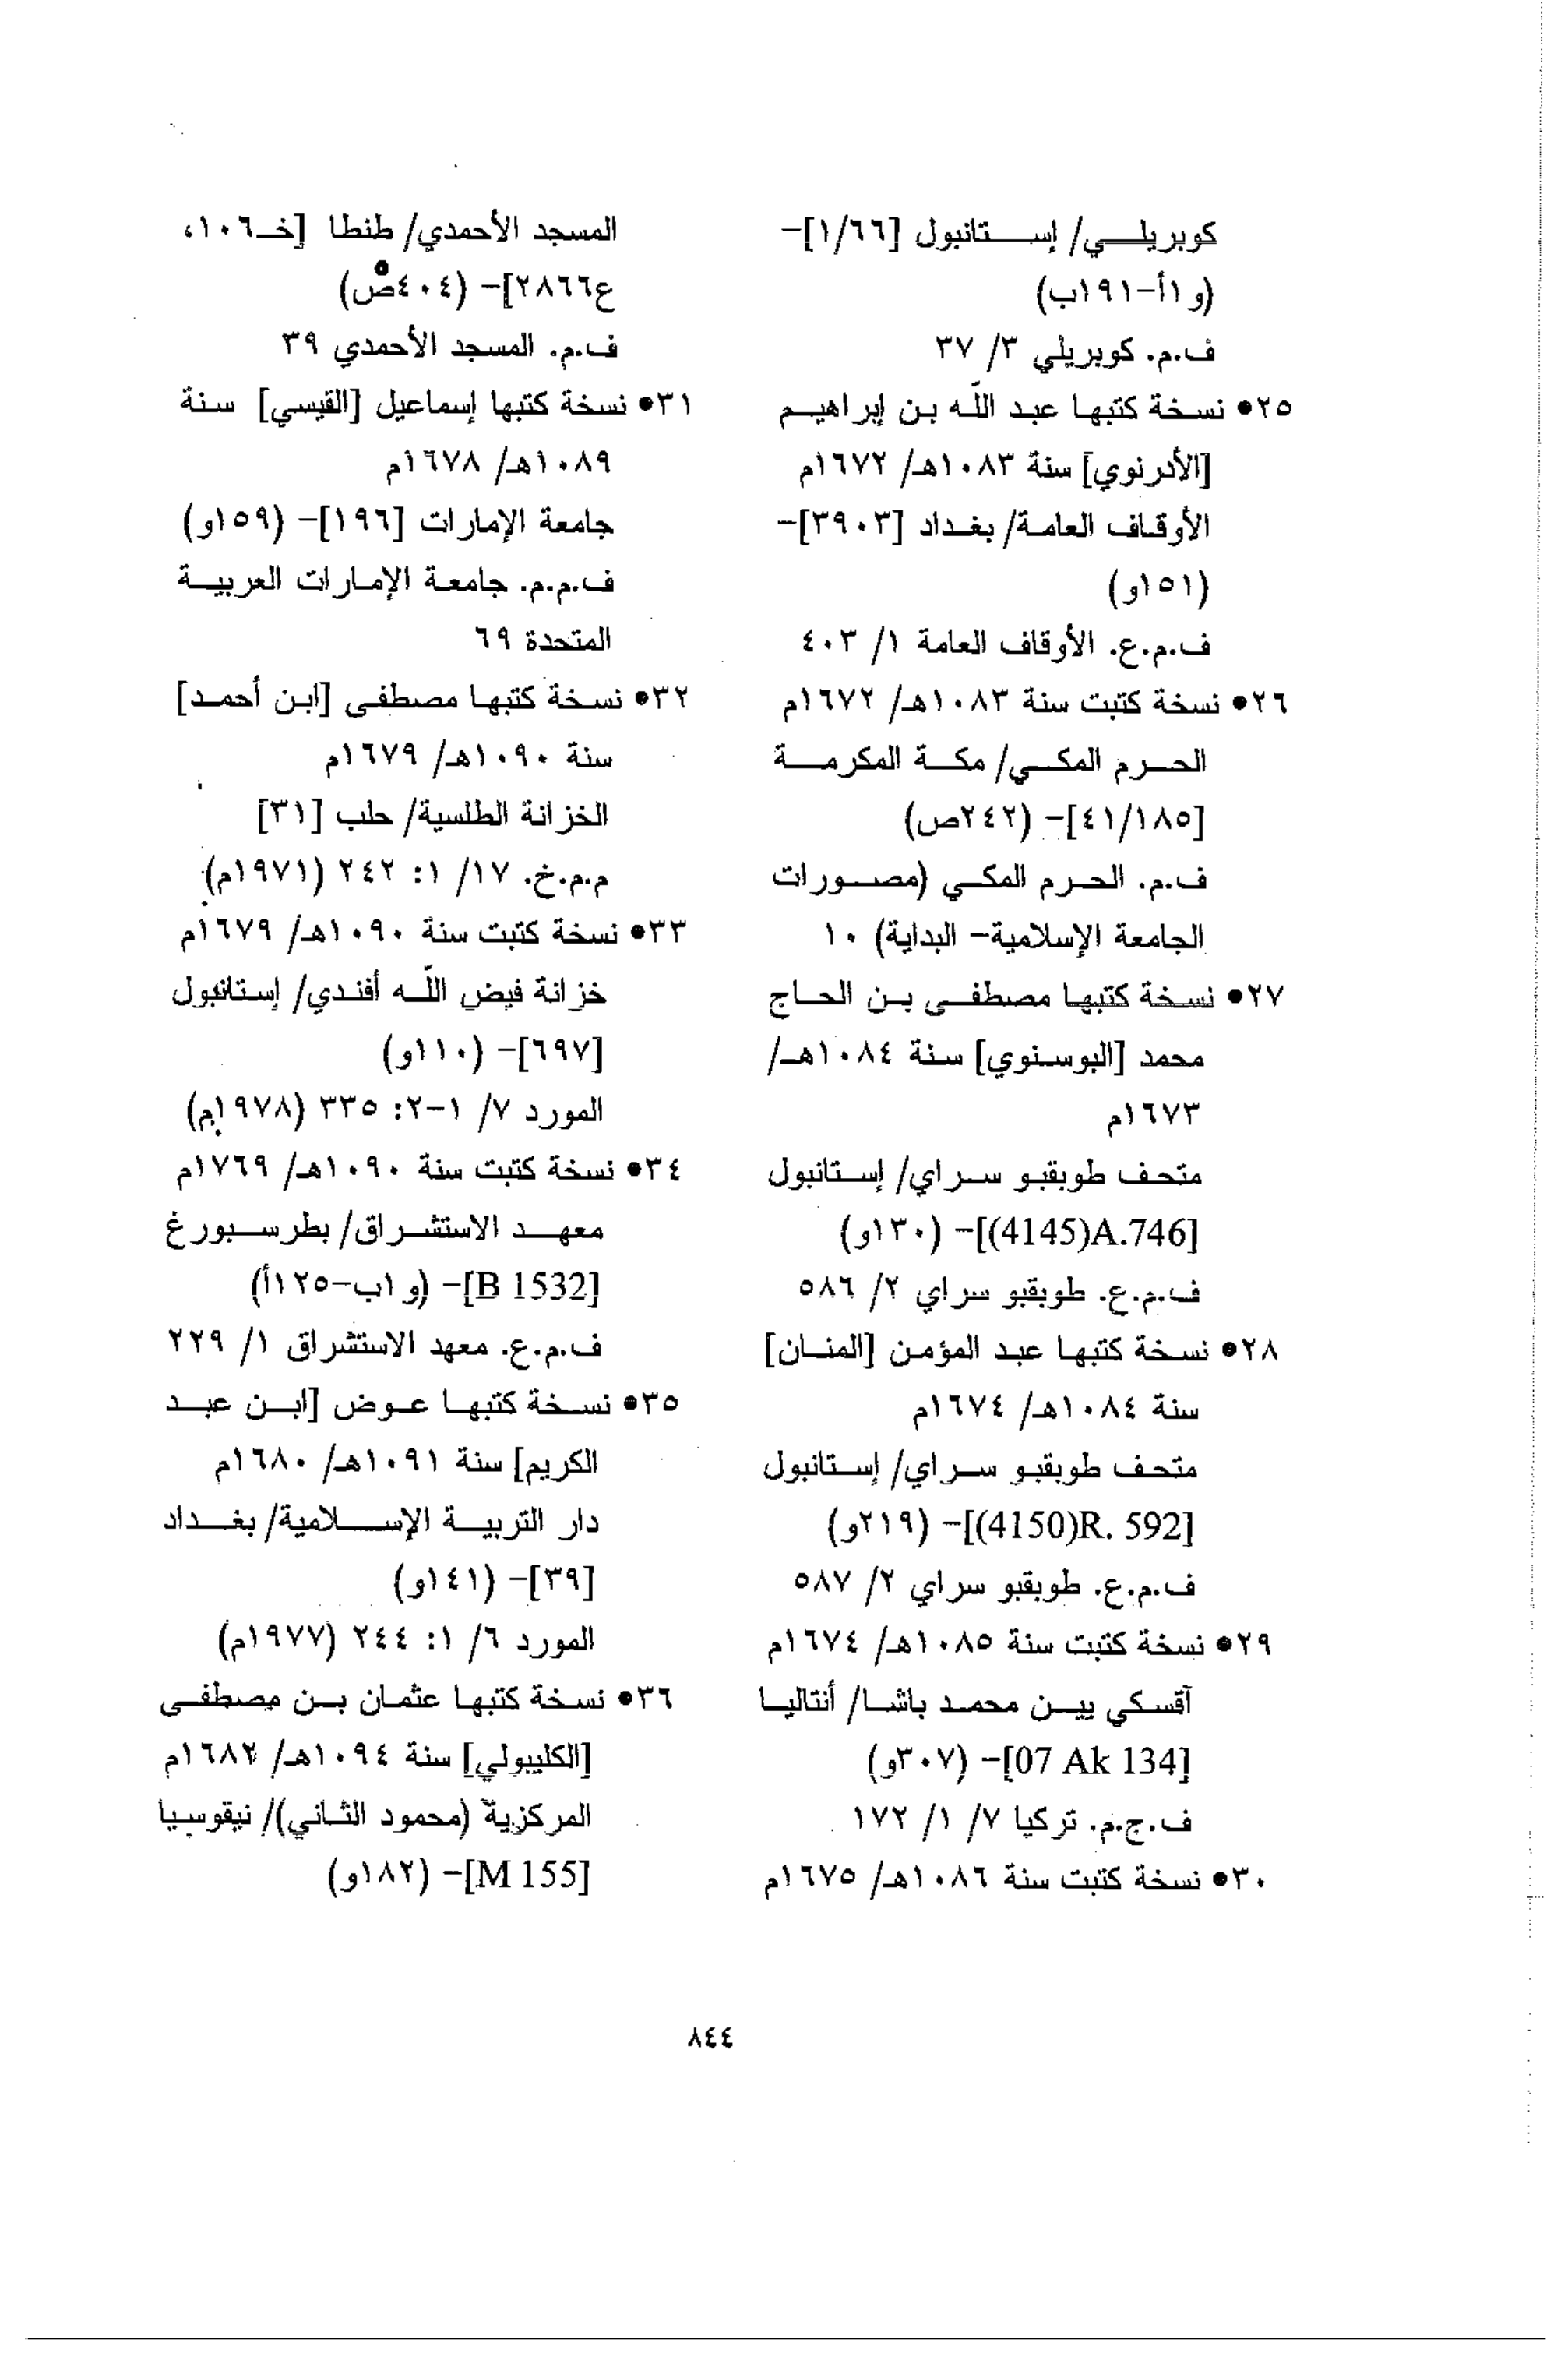 كوبريلي/ إستانبول [١/٦٦]-
(و١أ-١٩١ب)
ف.م. كوبريلي ٣/ ٣٧
٢٥● نسخة كتبها عبد اللّه بن إبراهيم
[الأدرنوي] سنة ١٠٨٣هـ/ ١٦٧٢م
الأوقاف العامة/ بغداد [٣٩٠٣]-
(١٥١و)
ف.م.ع. الأوقاف العامة ١/ ٤٠٣
٢٦● نسخة كتبت سنة ١٠٨٣هـ/ ١٦٧٢م
الحرم المكي/ مكة المكرمة
[٤١/١٨٥]- (٢٤٢ص)
ف.م. الحرم المكي (مصورات
الجامعة الإسلامية- البداية) ١٠
٢٧● نسخة كتبها مصطفى بن الحاج
محمد [البوسنوي] سنة ١٠٨٤هـ/
١٦٧٣م
متحف طوبقبو سراي/ إستانبول
[4145)A.746)]- (١٣٠و)
ف.م.ع. طوبقبو سراي ٢/ ٥٨٦
٢٨● نسخة كتبها عبد المؤمن [المنان]
سنة ١٠٨٤هـ/ ١٦٧٤م
متحف طوبقبو سراي/ إستانبول
[4150)R. 592)]- (٢١٩و)
ف.م.ع. طوبقبو سراي ٢/ ٥٨٧
٢٩● نسخة كتبت سنة ١٠٨٥هـ/ ١٦٧٤م
آقسكي يين محمد باشا/ أنتاليا
[07 Ak 134]- (٣٠٧و)
ف.ج.م. تركيا ٧/ ١/ ١٧٢
٣٠● نسخة كتبت سنة ١٠٨٦هـ/ ١٦٧٥م
المسجد الأحمدي/ طنطا [خـ١٠٦،
ع٢٨٦٦]- (٤٠٤ص)
ف.م. المسجد الأحمدي ٣٩
٣١● نسخة كتبها إسماعيل [القيسي] سنة
١٠٨٩هـ/ ١٦٧٨م
جامعة الإمارات [١٩٦]- (١٥٩و)
ف.م.م. جامعة الإمارات العربية
المتحدة ٦٩
٣٢● نسخة كتبها مصطفى [ابن أحمد]
سنة ١٠٩٠هـ/ ١٦٧٩م
الخزانة الطلسية/ حلب [٣١]
م.م.خ. ١٧/ ١: ٢٤٢ (١٩٧١م)
٣٣● نسخة كتبت سنة ١٠٩٠هـ/ ١٦٧٩م
خزانة فيض اللّه أفندي/ إستانبول
[٦٩٧]- (١١٠و)
المورد ٧/ ١-٢: ٣٣٥ (١٩٧٨م)
٣٤● نسخة كتبت سنة ١٠٩٠هـ/ ١٧٦٩م
معهد الاستشراق/ بطرسبورغ
[B 1532]- (و١ب-١٢٥أ)
ف.م.ع. معهد الاستشراق ١/ ٢٢٩
٣٥● نسخة كتبها عوض [ابن عبد
الكريم] سنة ١٠٩١هـ/ ١٦٨٠م
دار التربية الإسلامية/ بغداد
[٣٩]- (١٤١و)
المورد ٦/ ١: ٢٤٤ (١٩٧٧م)
٣٦● نسخة كتبها عثمان بن مصطفى
[الكليبولي] سنة ١٠٩٤هـ/ ١٦٨٢م
المركزية (محمود الثاني)/ نيقوسيا
[M 155]- (١٨٢و)
٨٤٤